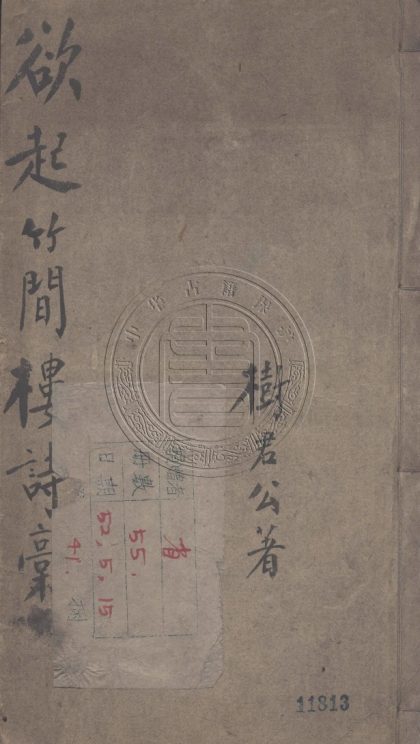 欲起竹間樓詩稾
樹君公著
册數
55.
日期
52.5.15
11813